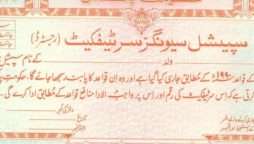 سپیشل سیونگز سرٹیفکیٹ (رجسٹرڈ)
ولد کے نام سپیشل
کے قواعد ۱۹۹۰ء کے مطابق جاری کیا گیا ہے اور وہ ان قواعد کا پابند سمجھا جائے گا۔ حکومت
کرتی ہے کہ اس سرٹیفکیٹ کی رقم اور اس پر واجب الادا منافع قواعد کے مطابق ادا کرے گی۔
دفتر کی مہر